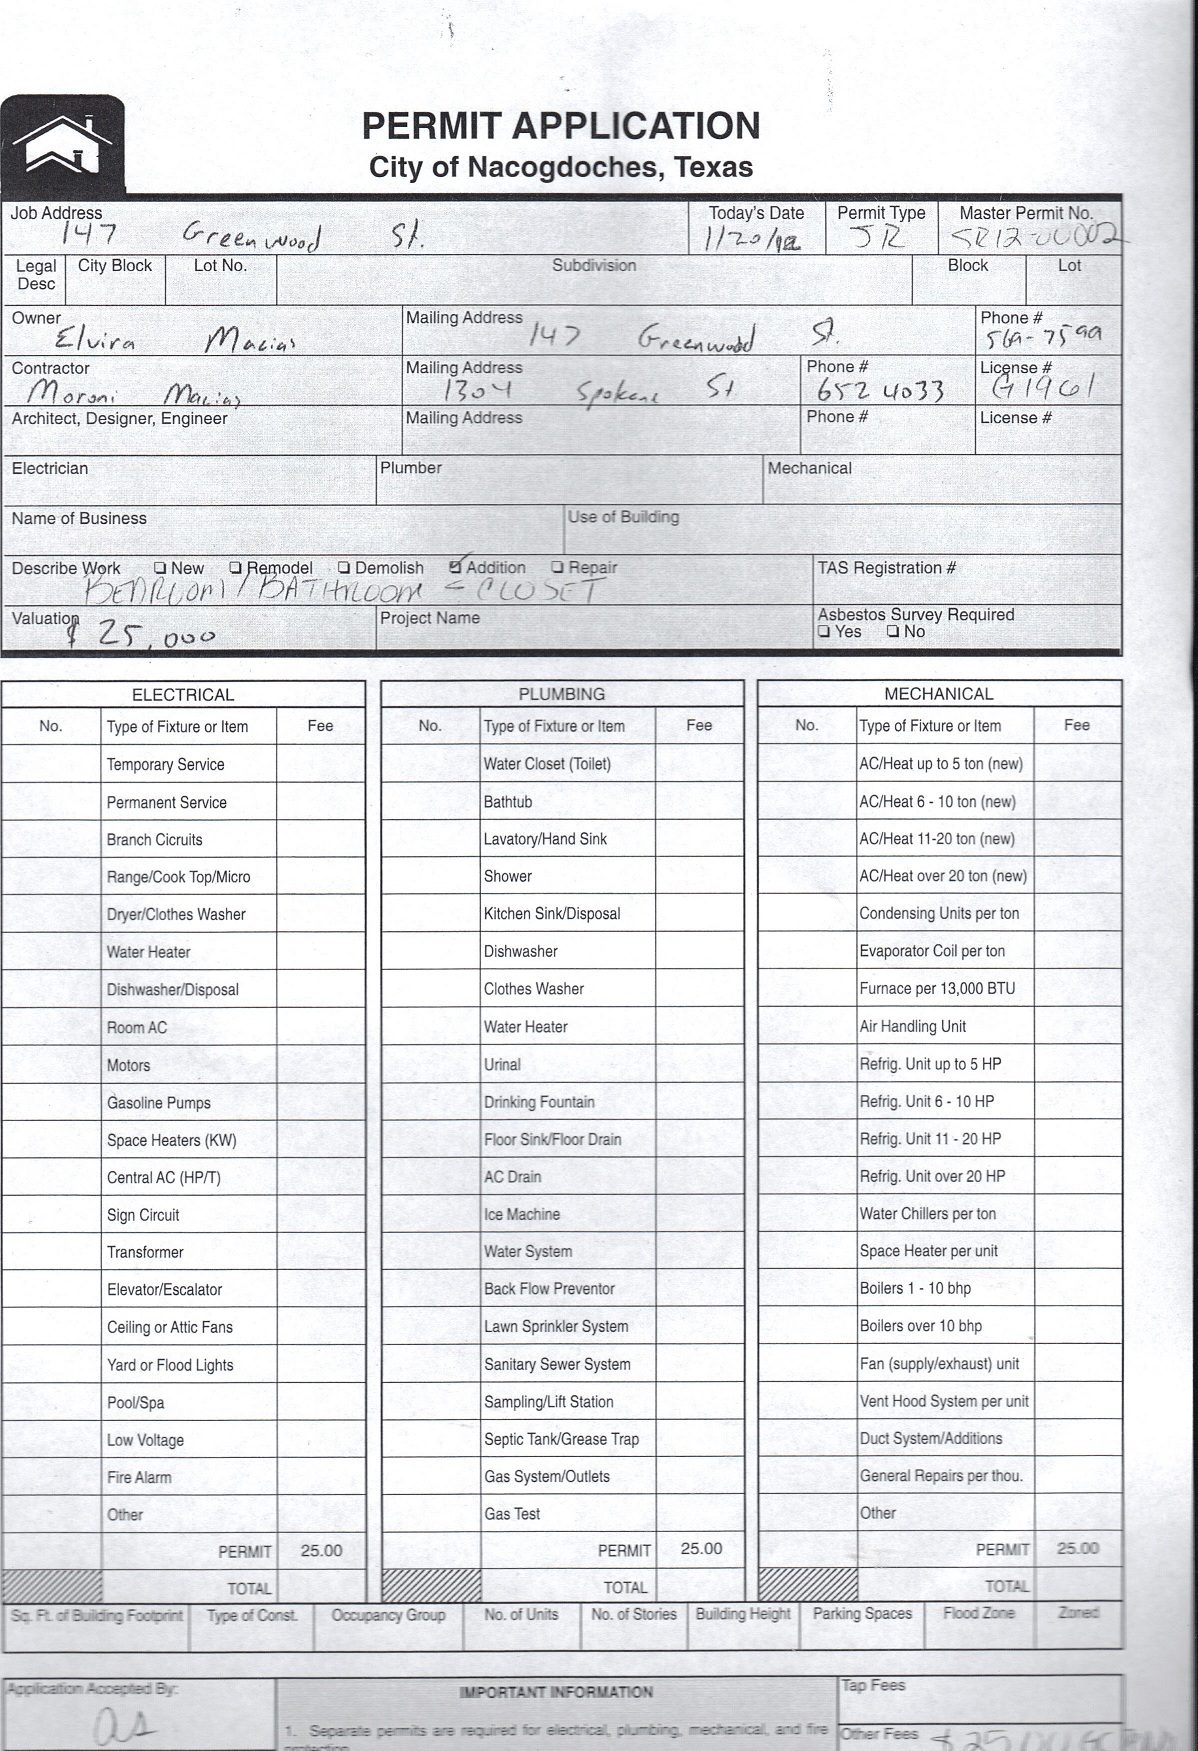 PERMIT APPLICATION
City of Nacogdoches, Texas
Job Address Today's Date Permit Type Master Permit No.
147 Greenwood St. 1/20/12 SR SR12-00002
Legal Desc City Block Lot No. Subdivision Block Lot
Owner Mailing Address Phone #
Elvira Macias 147 Greenwood St. 569-7599
Contractor Mailing Address Phone # License #
Moroni Macias 1304 Spokane St 652 4033 G1961
Architect, Designer, Engineer Mailing Address Phone # License #
Electrician Plumber Mechanical
Name of Business Use of Building
Describe Work ❑ New ❑ Remodel ❑ Demolish ☑ Addition ❑ Repair TAS Registration #
BEDROOM / BATHROOM CLOSET
Valuation Project Name Asbestos Survey Required
$ 25,000 ❑ Yes ❑ No
ELECTRICAL PLUMBING MECHANICAL
No. Type of Fixture or Item Fee No. Type of Fixture or Item Fee No. Type of Fixture or Item Fee
Temporary Service Water Closet (Toilet) AC/Heat up to 5 ton (new)
Permanent Service Bathtub AC/Heat 6 - 10 ton (new)
Branch Cicruits Lavatory/Hand Sink AC/Heat 11-20 ton (new)
Range/Cook Top/Micro Shower AC/Heat over 20 ton (new)
Dryer/Clothes Washer Kitchen Sink/Disposal Condensing Units per ton
Water Heater Dishwasher Evaporator Coil per ton
Dishwasher/Disposal Clothes Washer Furnace per 13,000 BTU
Room AC Water Heater Air Handling Unit
Motors Urinal Refrig. Unit up to 5 HP
Gasoline Pumps Drinking Fountain Refrig. Unit 6 - 10 HP
Space Heaters (KW) Floor Sink/Floor Drain Refrig. Unit 11 - 20 HP
Central AC (HP/T) AC Drain Refrig. Unit over 20 HP
Sign Circuit Ice Machine Water Chillers per ton
Transformer Water System Space Heater per unit
Elevator/Escalator Back Flow Preventor Boilers 1 - 10 bhp
Ceiling or Attic Fans Lawn Sprinkler System Boilers over 10 bhp
Yard or Flood Lights Sanitary Sewer System Fan (supply/exhaust) unit
Pool/Spa Sampling/Lift Station Vent Hood System per unit
Low Voltage Septic Tank/Grease Trap Duct System/Additions
Fire Alarm Gas System/Outlets General Repairs per thou.
Other Gas Test Other
PERMIT 25.00 PERMIT 25.00 PERMIT 25.00
TOTAL TOTAL TOTAL
Sq. Ft. of Building Footprint Type of Const. Occupancy Group No. of Units No. of Stories Building Height Parking Spaces Flood Zone Zoned
Application Accepted By: IMPORTANT INFORMATION Tap Fees
as 1. Separate permits are required for electrical, plumbing, mechanical, and fire Other Fees
protection.